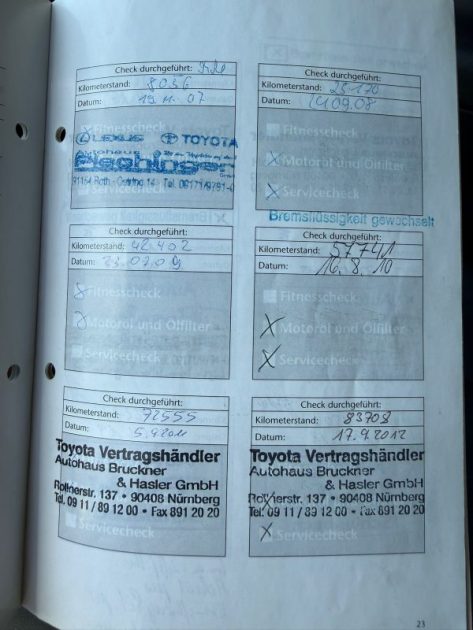 Check durchgeführt:
Kilometerstand: 8056
Datum: 19.11.07
Fitnesscheck
LEXUS TOYOTA
Autohaus
91154 Roth
Check durchgeführt:
Kilometerstand: 23170
Datum: 14.09.08
Fitnesscheck
Motoröl und Ölfilter
Servicecheck
Bremsflüssigkeit gewechselt
Check durchgeführt:
Kilometerstand: 42402
Datum: 23.07.09
Fitnesscheck
Motoröl und Ölfilter
Servicecheck
Check durchgeführt:
Kilometerstand: 57741
Datum: 16.8.10
Fitnesscheck
Motoröl und Ölfilter
Servicecheck
Check durchgeführt:
Kilometerstand: 72555
Datum: 5.9.2011
Toyota Vertragshändler
Autohaus Bruckner
& Hasler GmbH
Rollnerstr. 137 • 90408 Nürnberg
Tel. 09 11 / 89 12 00 • Fax 891 20 20
Servicecheck
Check durchgeführt:
Kilometerstand: 83708
Datum: 17.9.2012
Toyota Vertragshändler
Autohaus Bruckner
& Hasler GmbH
Rollnerstr. 137 • 90408 Nürnberg
Tel. 09 11 / 89 12 00 • Fax 891 20 20
Servicecheck
23